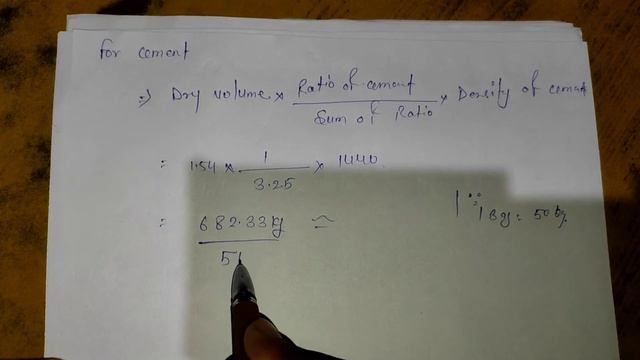 For cement
=> Dry volume × Ratio of cement / Sum of Ratio × Density of cement
= 1.54 × 1 / 3.25 × 1440
= 682.33 kg / 5 ≃
∵ 1 Bag = 50 kg